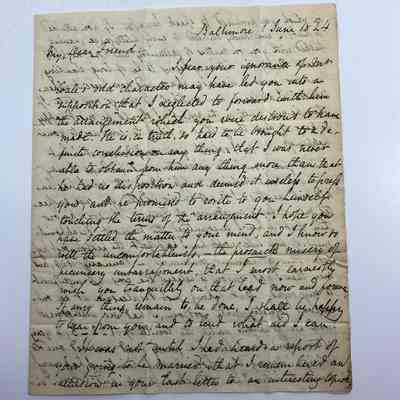 Baltimore 7 June 1824
My dear Friend
I fear your ignorance of
odd character may have led you into a
supposition that I neglected to forward with him
the arrangements which you were desirous to have
made. He is, in truth, so hard to be brought to a de-
finite conclusion on any thing, that I was never
able to obtain from him any thing more than that
he had no disposition and deemed it useless to press
you, and he promised to write to you himself
touching the terms of the arrangement. I hope you
have settled the matter to your mind, and I know so
well the uncomfortableness, the prosaick misery of
pecuniary embarrassment, that I most earnestly
wish you tranquillity on that head now and
if any thing remain to be done, I shall be happy
to hear from you, and to lend what aid I can.
It was not until I had heard a report of
your going to be married that I remembered an
allusion in your last letter to an interesting